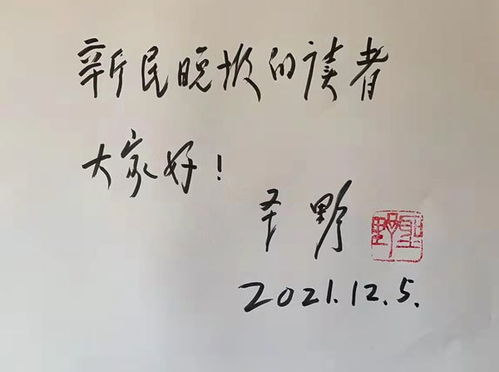 新民晚报的读者
大家好！
圣野
2021.12.5.